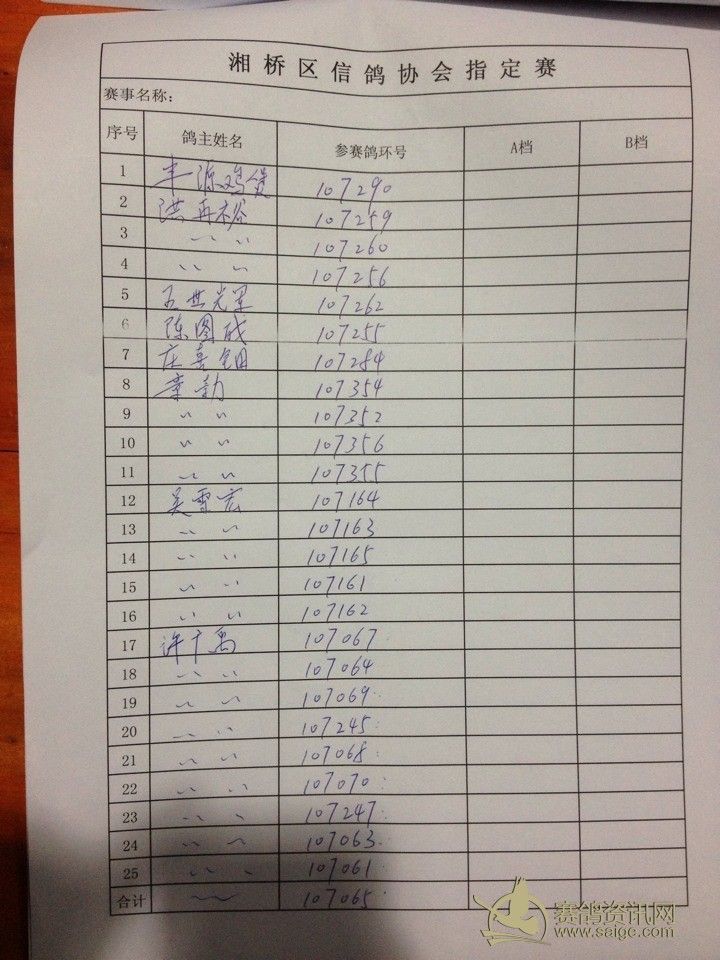 湘桥区信鸽协会指定赛
赛事名称：
序号 鸽主姓名 参赛鸽环号 A档 B档
1 丰源鸡煲 107290
2 洪再裕 107259
3 〃 〃 107260
4 〃 〃 107256
5 五世光军 107262
6 陈图成 107255
7 庄喜钿 107284
8 章勃 107354
9 〃 〃 107352
10 〃 〃 107356
11 〃 〃 107355
12 吴雪宏 107164
13 〃 〃 107163
14 〃 〃 107165
15 〃 〃 107161
16 〃 〃 107162
17 许十禹 107067
18 〃 〃 107064
19 〃 〃 107069
20 〃 〃 107245
21 〃 〃 107068
22 〃 〃 107070
23 〃 〃 107247
24 〃 〃 107063
25 〃 〃 107061
合计 〃 107065
赛鸽资讯网
www.saige.com